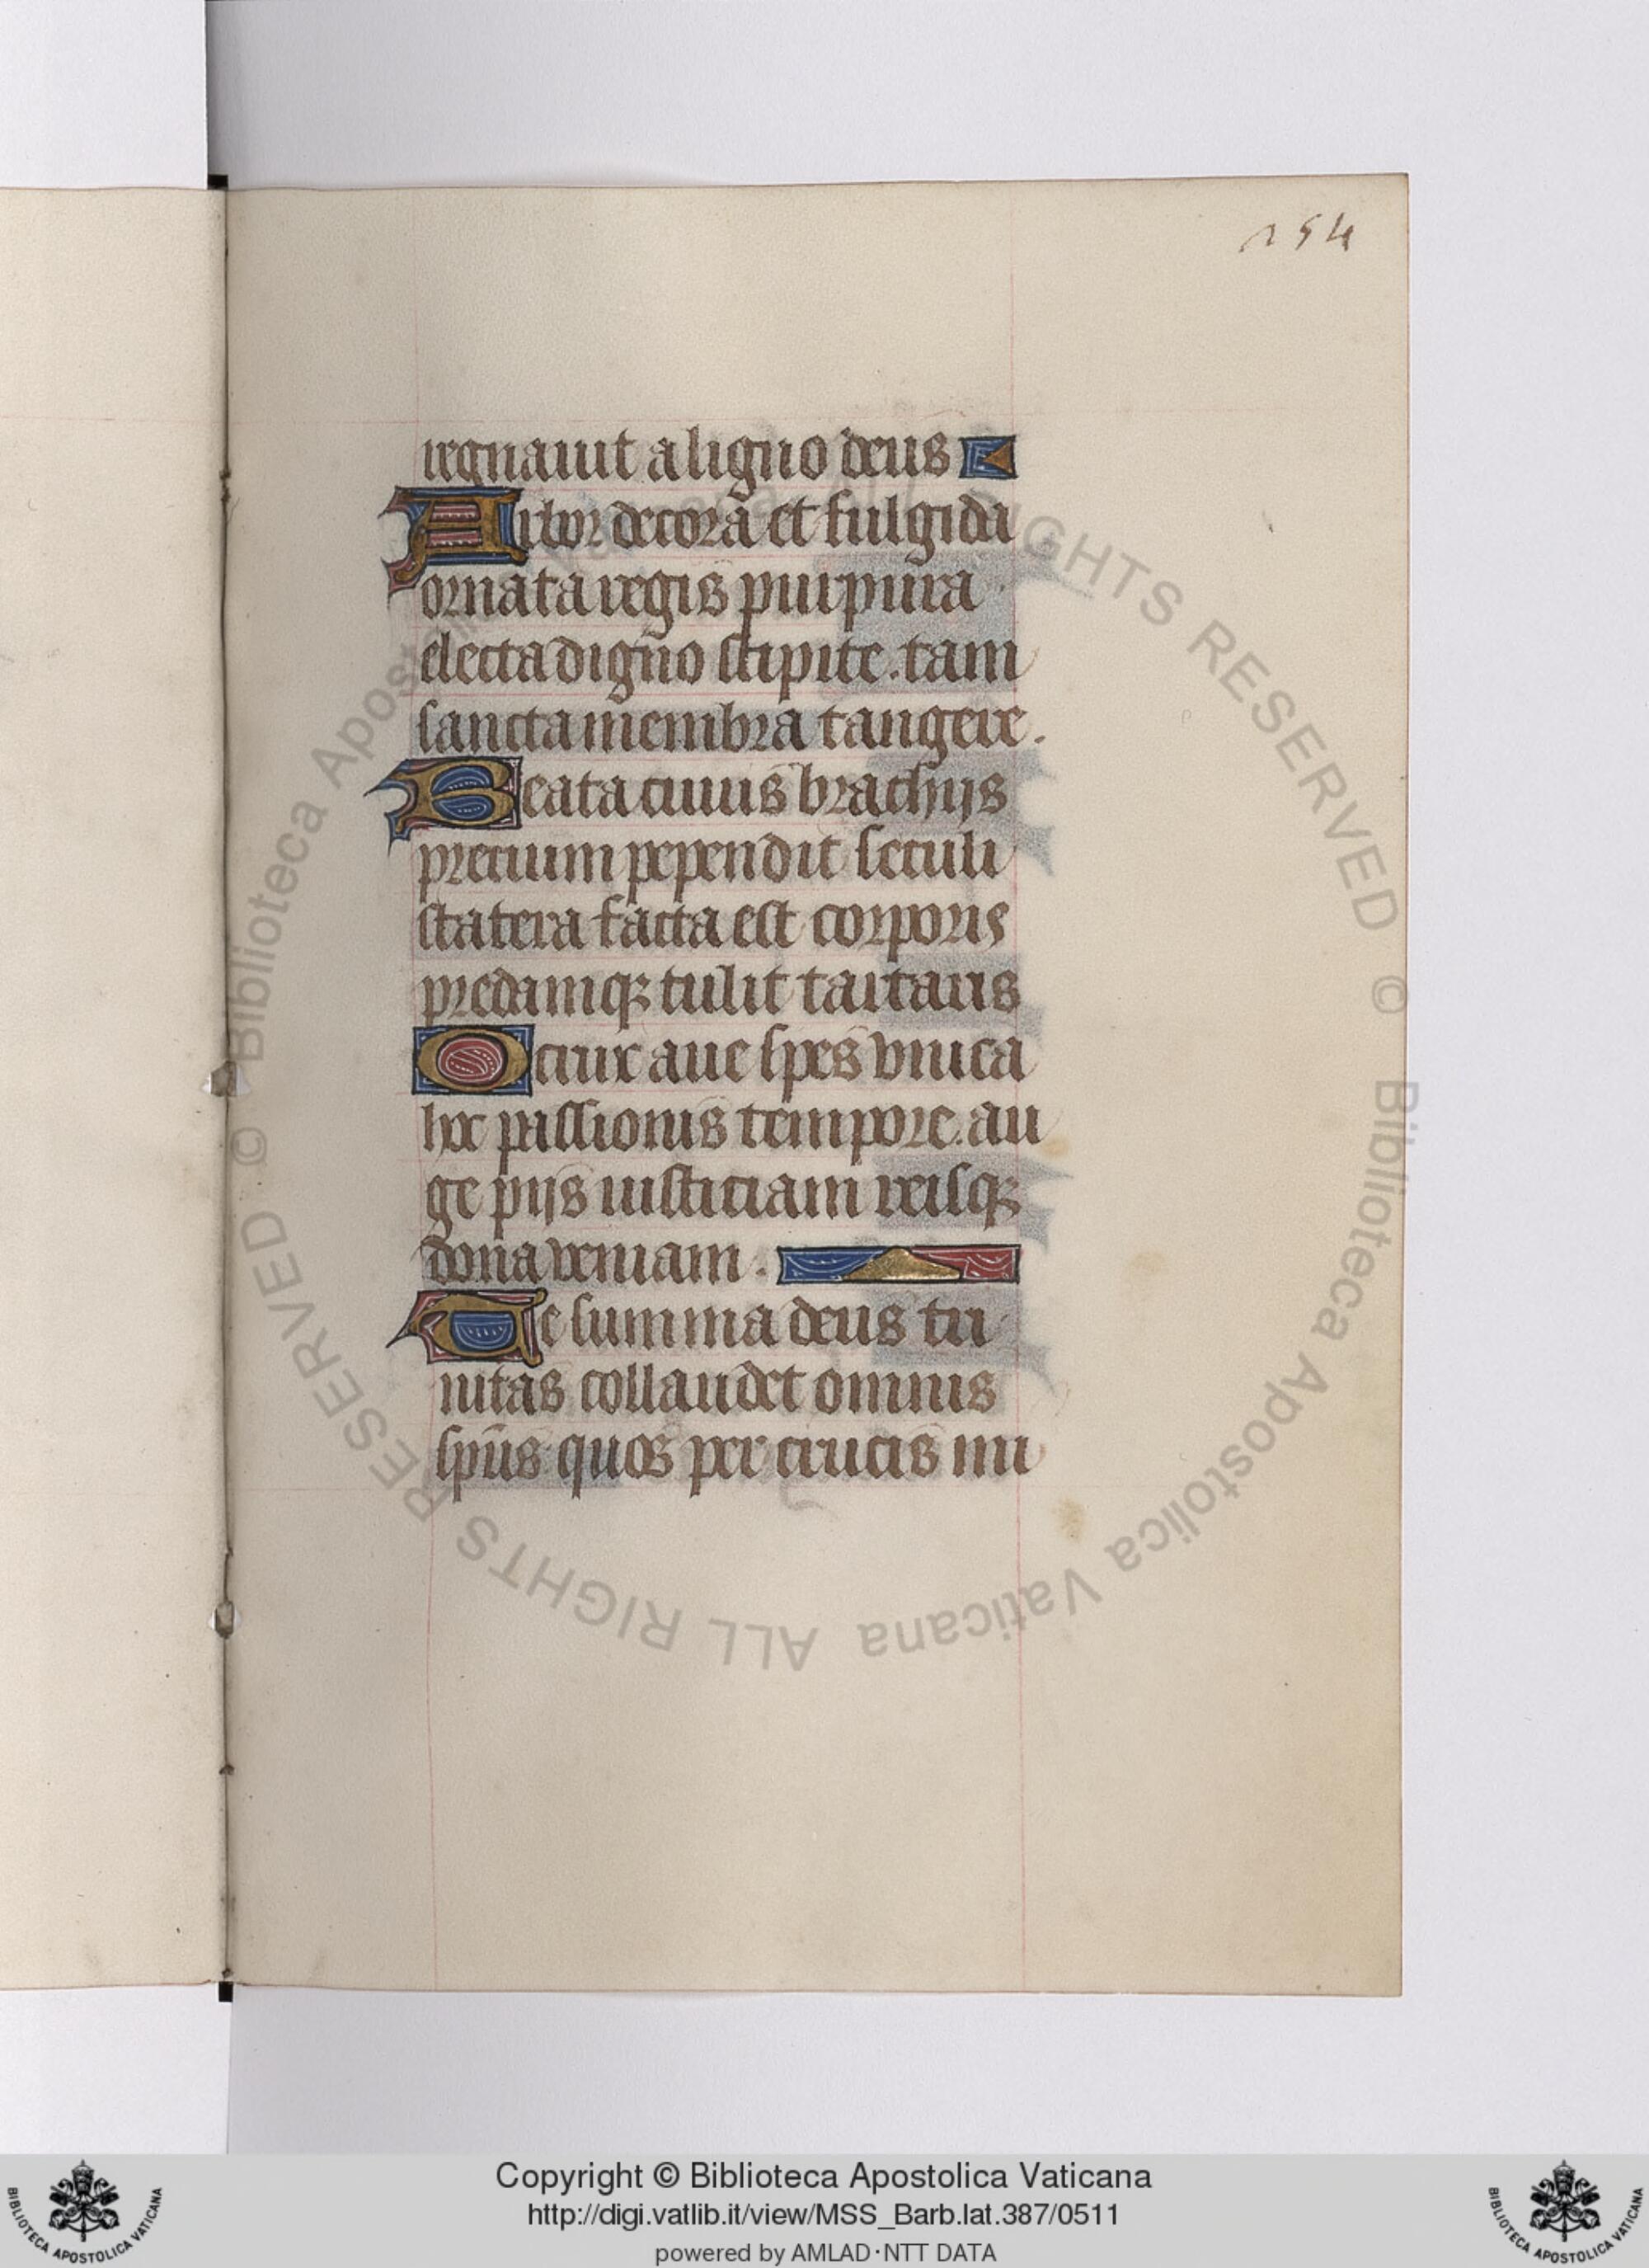 254
regnauit a ligno deus
Arbor decora et fulgida
ornata regis purpura
electa digno stipite. tam
sancta membra tangere.
Beata cuius brachijs
precium pependit seculi
statera facta est corporis
predamq; tulit tartaris
O crux aue spes vnica
hoc passionis tempore. au
ge pijs iusticiam reisq;
dona ueniam.
Te summa deus tri
nitas collaudet omnis
sp̄us quos per crucis mi
© Biblioteca Apostolica Vaticana ALL RIGHTS RESERVED
© Biblioteca Apostolica Vaticana ALL RIGHTS RESERVED
Copyright © Biblioteca Apostolica Vaticana
http://digi.vatlib.it/view/MSS_Barb.lat.387/0511
powered by AMLAD·NTT DATA
BIBLIOTECA APOSTOLICA VATICANA
BIBLIOTECA APOSTOLICA VATICANA